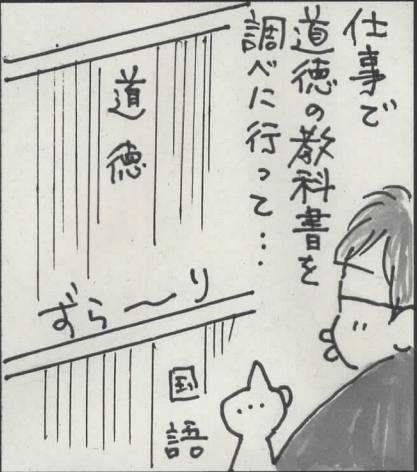 仕事で
道徳の教科書を
調べに行って…
道徳
ずら〜り
国語